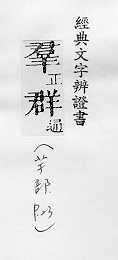 經典文字辨證書
羣正
群通
(羊部
P.53)